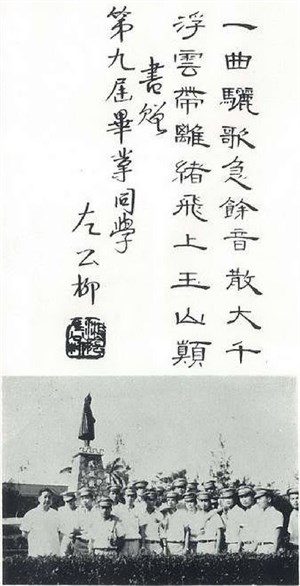 一曲驪歌急餘音散大千
浮雲帶離緒飛上玉山顛
書贈
第九屆畢業同學
左公柳